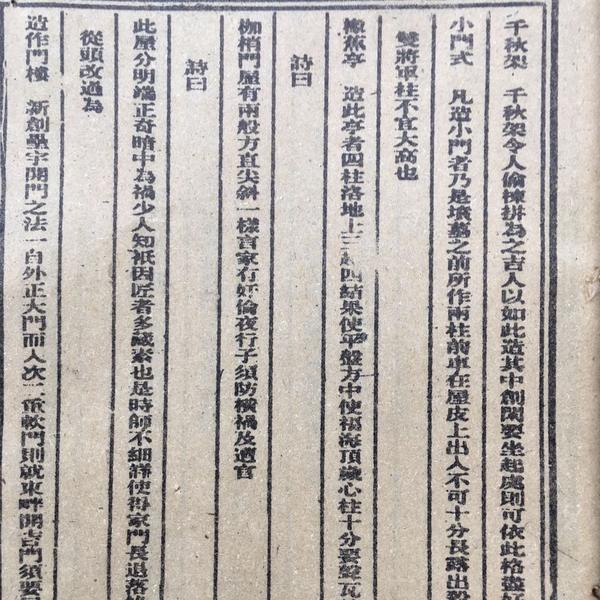 千秋架　千秋架今人偷棟拼為之吉人以如此造其中創閑要坐起處則可依此格盡好
小門式　凡造小門者乃是墳墓之前所作兩柱前重在屋皮上出入不可十分長露出殺
雙將軍柱不宜大高也
㯶蕉亭　造此亭者四柱洛地上三超四結果使平盤方中使福海頂藏心柱十分要聳瓦
詩曰
枷梢門屋有兩般方直尖斜一樣言家有奸偷夜行子須防橫禍及遭官
詩曰
此屋分明端正奇暗中為禍少人知衹因匠者多藏素也是時師不細詳使得家門長退落
從頭改過為
造作門樓　新創屋宇開門之法一自外正大門而入次二重較門則就東畔開吉門須要